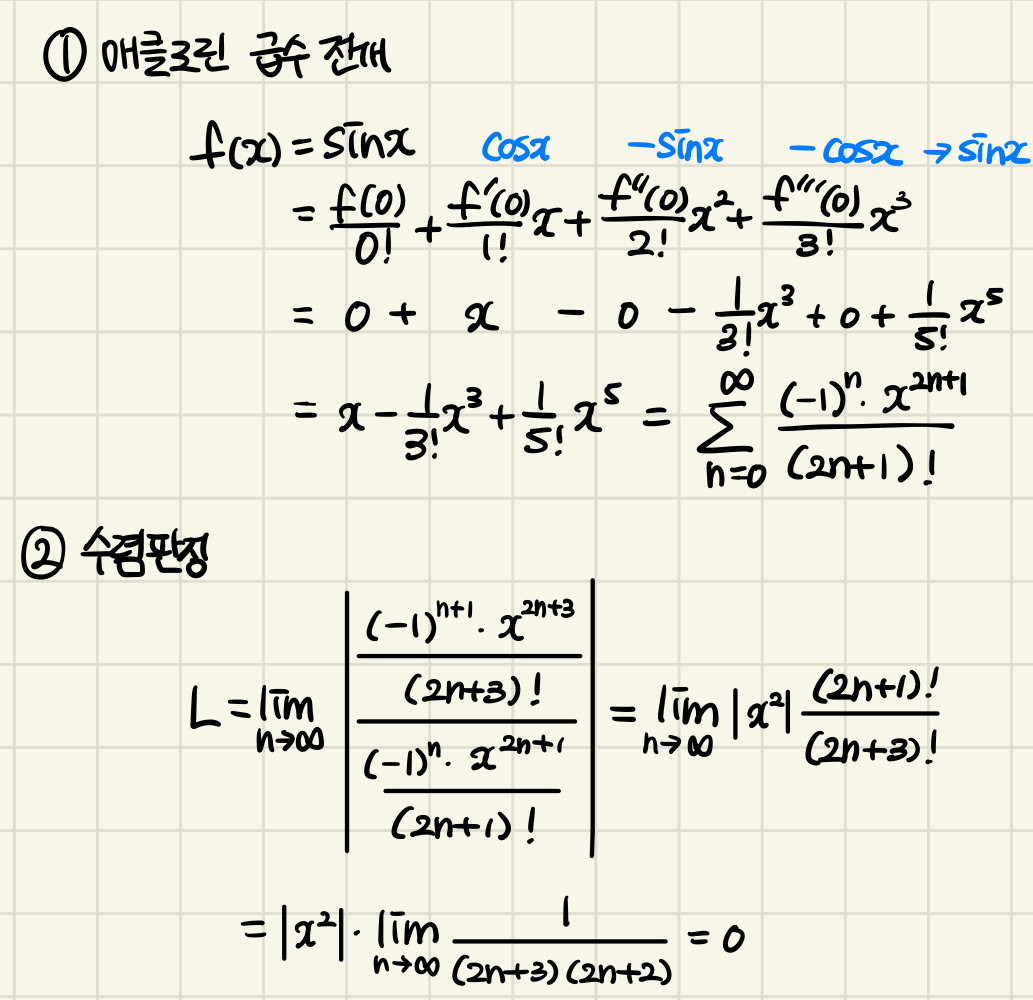 ① 매클로린 급수 전개
f(x) = sinx cosx -sinx -cosx → sinx
= f(0)/0! + f'(0)/1! x + f''(0)/2! x² + f'''(0)/3! x³
= 0 + x - 0 - 1/3! x³ + 0 + 1/5! x⁵
= x - 1/3! x³ + 1/5! x⁵ = ∑_{n=0}^{∞} (-1)ⁿ · x^{2n+1} / (2n+1)!
② 수렴판정
L = lim_{n→∞} | ((-1)^{n+1} · x^{2n+3} / (2n+3)!) / ((-1)ⁿ · x^{2n+1} / (2n+1)!) | = lim_{n→∞} |x²| (2n+1)! / (2n+3)!
= |x²| · lim_{n→∞} 1 / (2n+3)(2n+2) = 0